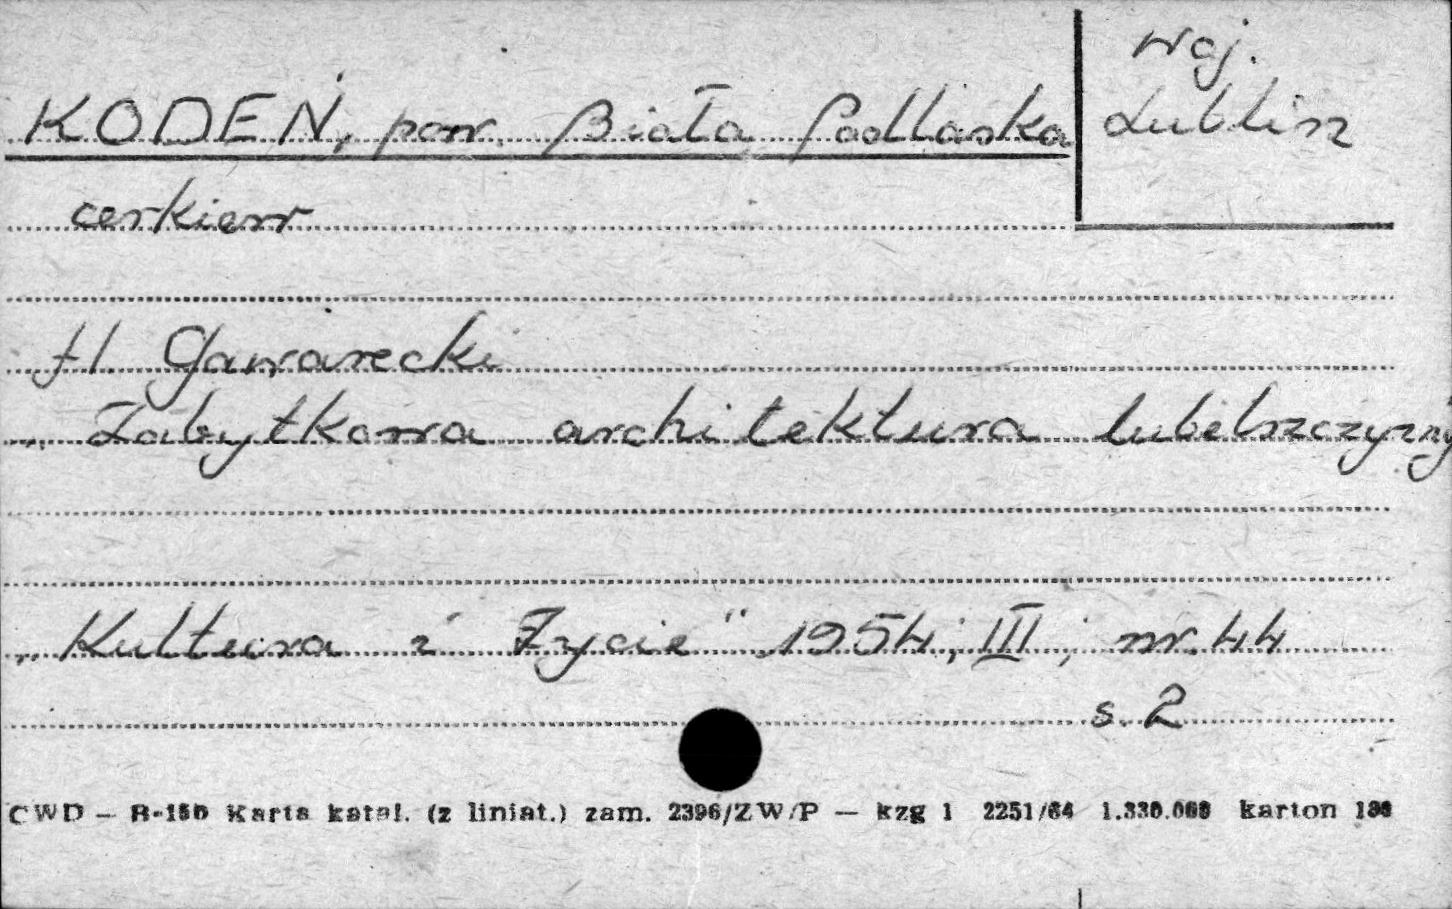 woj.
Lublin
KODEŃ, pow. Biała Podlaska
cerkiew
H. Gawarecki
„Zabytkowa architektura lubelszczyzny
„Kultura i Życie" 1954; III; nr. 44
s. 2
CWD — B-15b Karta katal. (z liniat.) zam. 2396/ZW/P — kzg 1 2251/64 1.330.000 karton